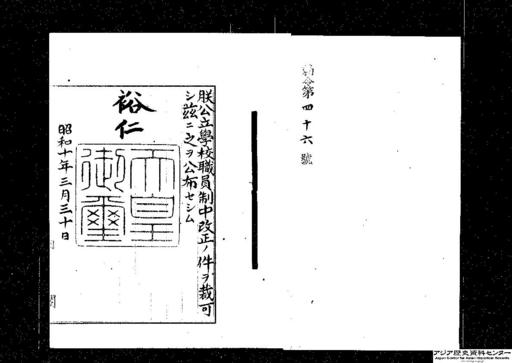 勅令第四十六號
朕公立學校職員制中改正ノ件ヲ裁可
シ茲ニ之ヲ公布セシム
裕仁
天皇御璽
昭和十年三月三十日
アジア歴史資料センター
Japan Center for Asian Historical Records